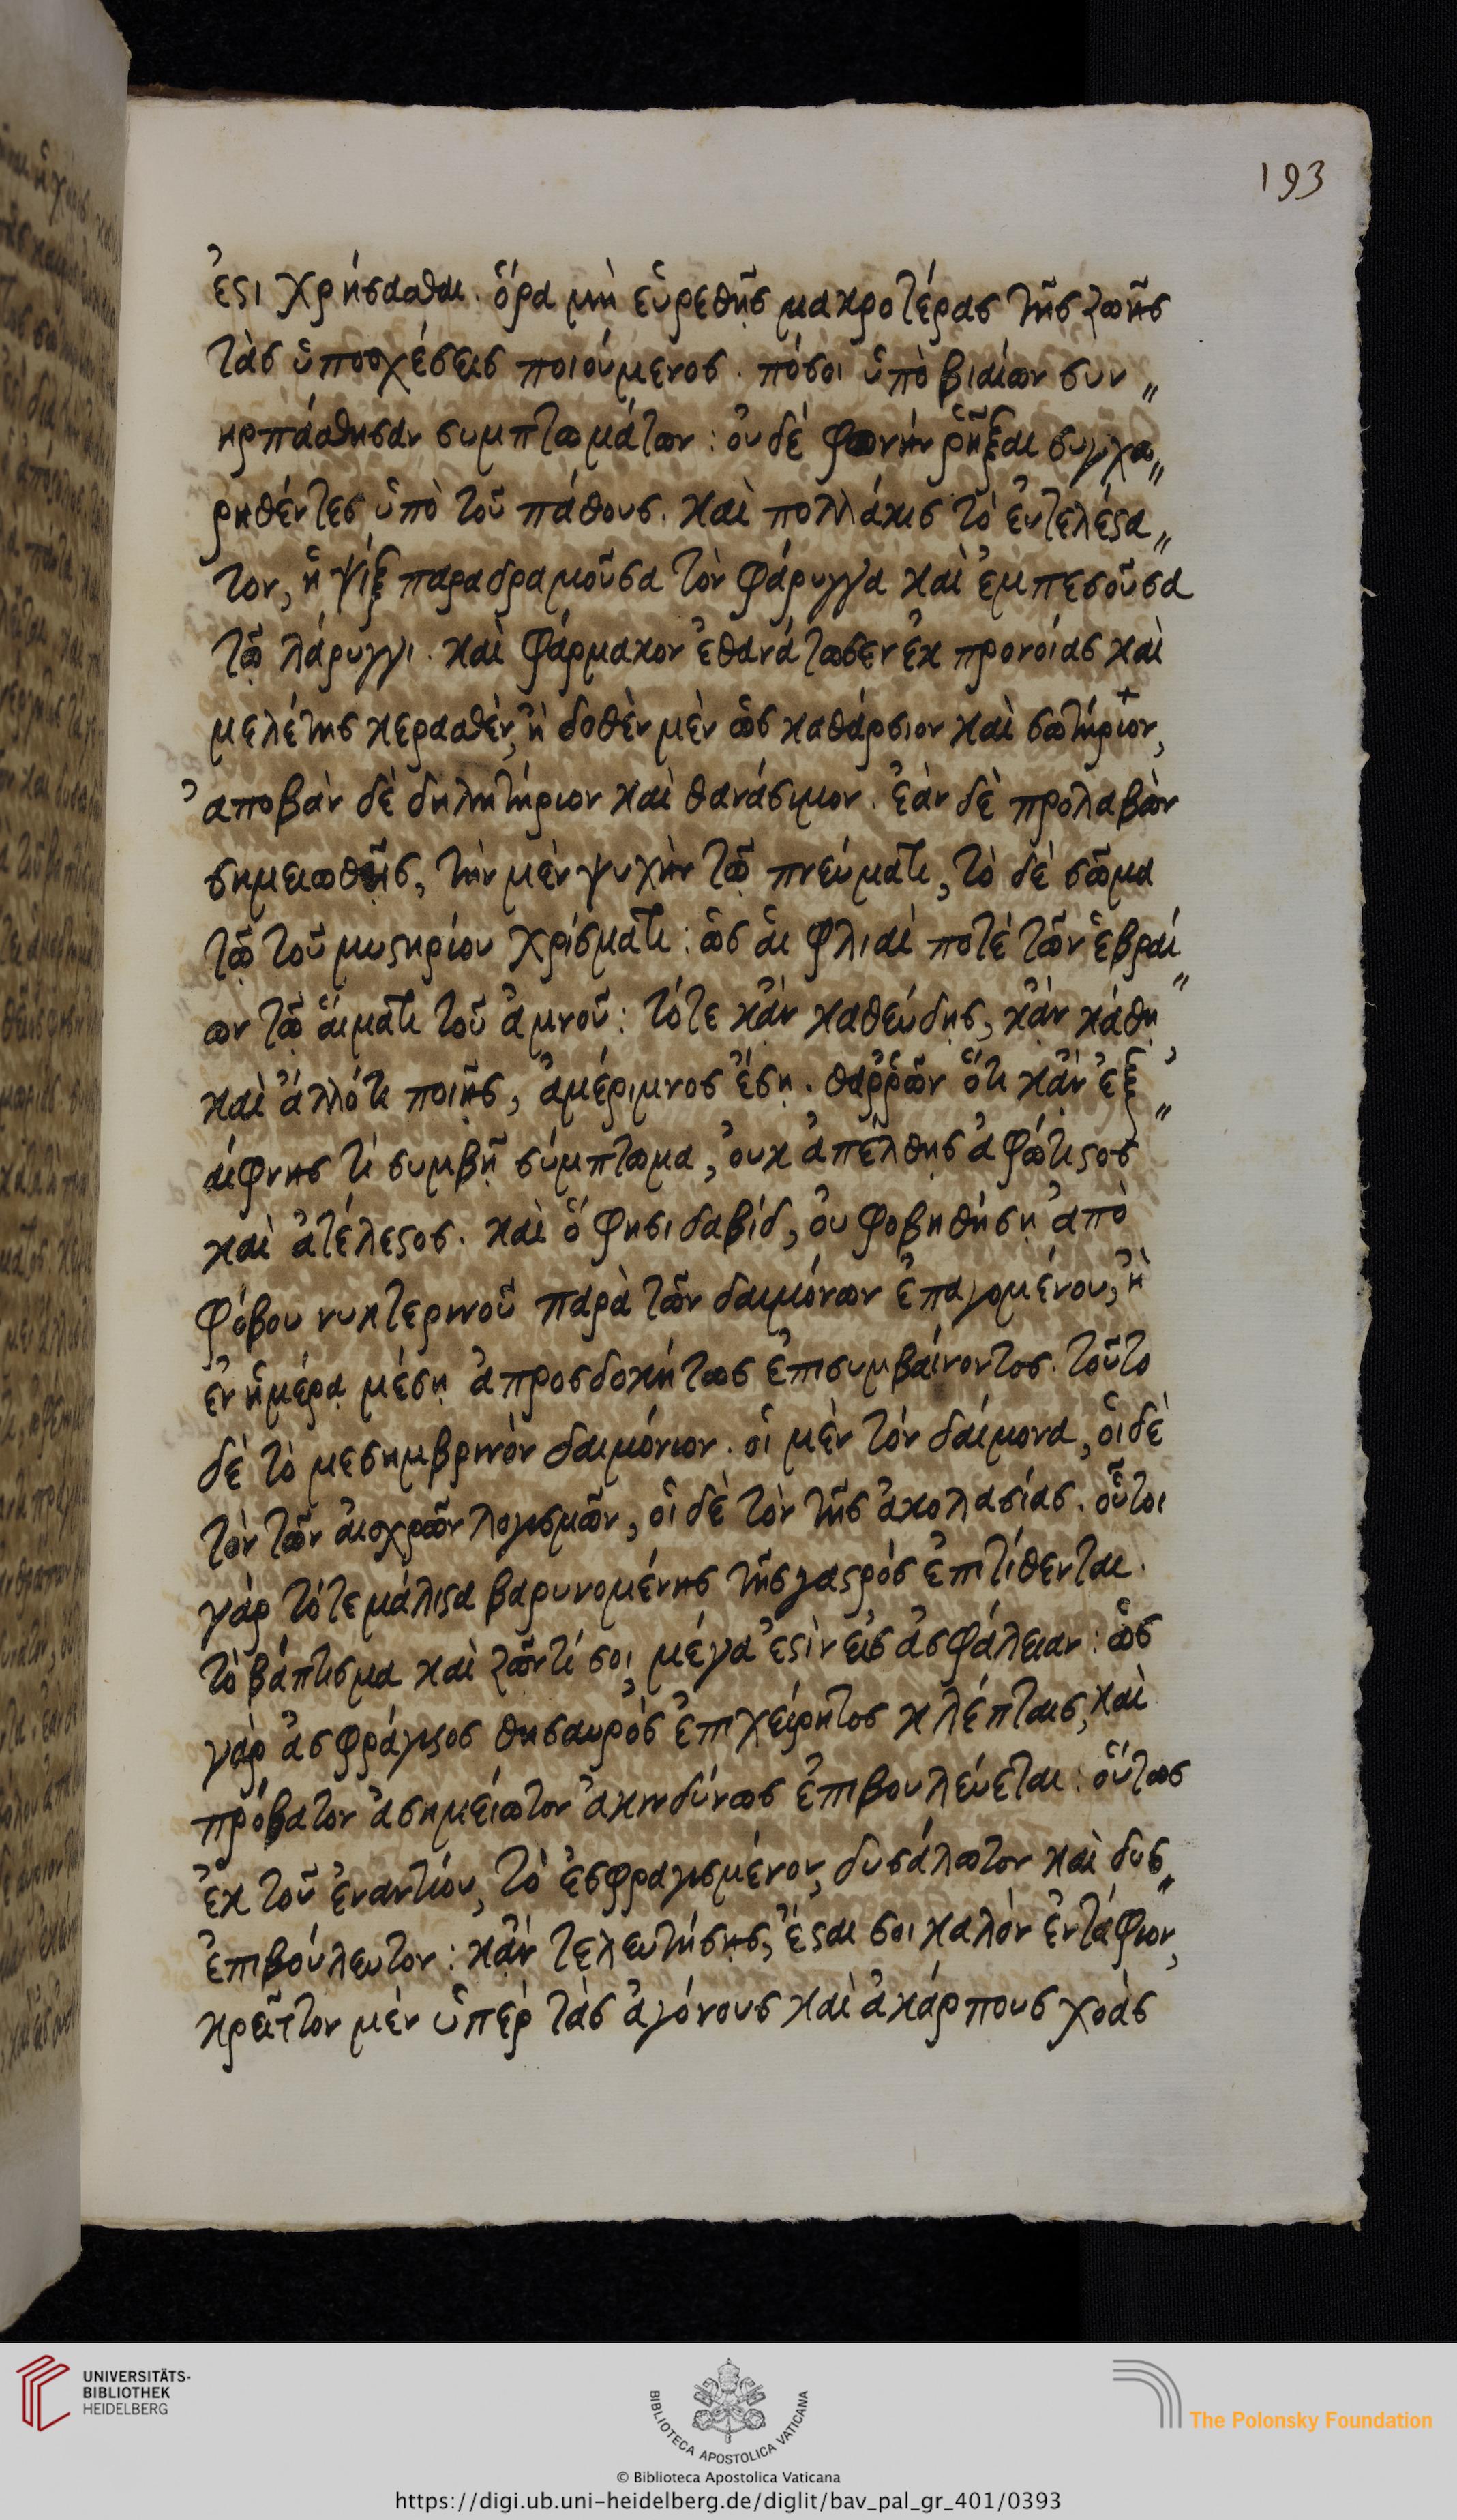 193
ἐστι χρήσασθαι. ὅρα μὴ εὑρεθῇς μακροτέρας τῆς ζωῆς
τὰς ὑποσχέσεις ποιούμενος. πόσοι ὑπὸ βιαίων συν„
ηρπάσθησαν συμπτωμάτων: οὐδὲ φωνὴν ῥῆξαι συγχω„
ρηθέντες ὑπὸ τοῦ πάθους. καὶ πολλάκις τὸ εὐτελέστα„
τον, ἡ ψίξ παραδραμοῦσα τὸν φάρυγγα καὶ ἐμπεσοῦσα
τῷ λάρυγγι. καὶ φάρμακον ἐθανάτωσεν ἐκ προνοίας καὶ
μελέτης κερασθὲν, ἢ δοθὲν μὲν ὡς καθάρσιον καὶ σωτήριον,
ἀποβὰν δὲ δηλητήριον καὶ θανάσιμον. ἐὰν δὲ προλαβὼν
σημειωθῇς, τὴν μὲν ψυχὴν τῷ πνεύματι, τὸ δὲ σῶμα
τῷ τοῦ μυστηρίου χρίσματι: ὡς αἱ φλιαί ποτε τῶν ἑβραί„
ων τῷ αἵματι τοῦ ἀμνοῦ: τότε κἂν καθεύδῃς, κἂν κάθῃ
καὶ ἀλλότι ποιῇς, ἀμέριμνος ἔσῃ. θαῤῥῶν ὅτι κἂν ἐξ„
αίφνης τί συμβῇ σύμπτωμα, οὐκ ἀπέλθῃς ἀφώτιστος
καὶ ἀτέλεστος. καὶ ὅ φησι δαβίδ, οὐ φοβηθήσῃ ἀπὸ
φόβου νυκτερινοῦ παρὰ τῶν δαιμόνων ἐπαγομένου, ἢ
ἐν ἡμέρᾳ μέσῃ ἀπροσδοκήτως ἐπισυμβαίνοντος. τοῦτο
δὲ τὸ μεσημβρινὸν δαιμόνιον. οἱ μὲν τὸν δαίμονα, οἱ δὲ
τὸν τῶν αἰσχρῶν λογισμῶν, οἱ δὲ τὸν τῆς ἀκολασίας. οὗτοι
γὰρ τότε μάλιστα βαρυνομένης τῆς γαστρός ἐπιτίθενται.
τὸ βάπτισμα καὶ ζῶντί σοι μέγα ἐστὶν εἰς ἀσφάλειαν: ὡς
γὰρ ἀσφράγιστος θησαυρὸς ἐπιχείρητος κλέπταις, καὶ
πρόβατον ἀσημείωτον ἀκινδύνως ἐπιβουλεύεται: οὕτως
ἐκ τοῦ ἐναντίου, τὸ ἐσφραγισμένον, δυσάλωτον καὶ δυσ„
ἐπιβούλευτον: κἂν τελευτήσῃς, ἔσται σοι καλὸν ἐντάφιον,
κρεῖττον μὲν ὑπὲρ τὰς ἀγόνους καὶ ἀκάρπους χοὰς
UNIVERSITÄTS-
BIBLIOTHEK
HEIDELBERG
BIBLIOTECA APOSTOLICA VATICANA
The Polonsky Foundation
© Biblioteca Apostolica Vaticana
https://digi.ub.uni-heidelberg.de/diglit/bav_pal_gr_401/0393